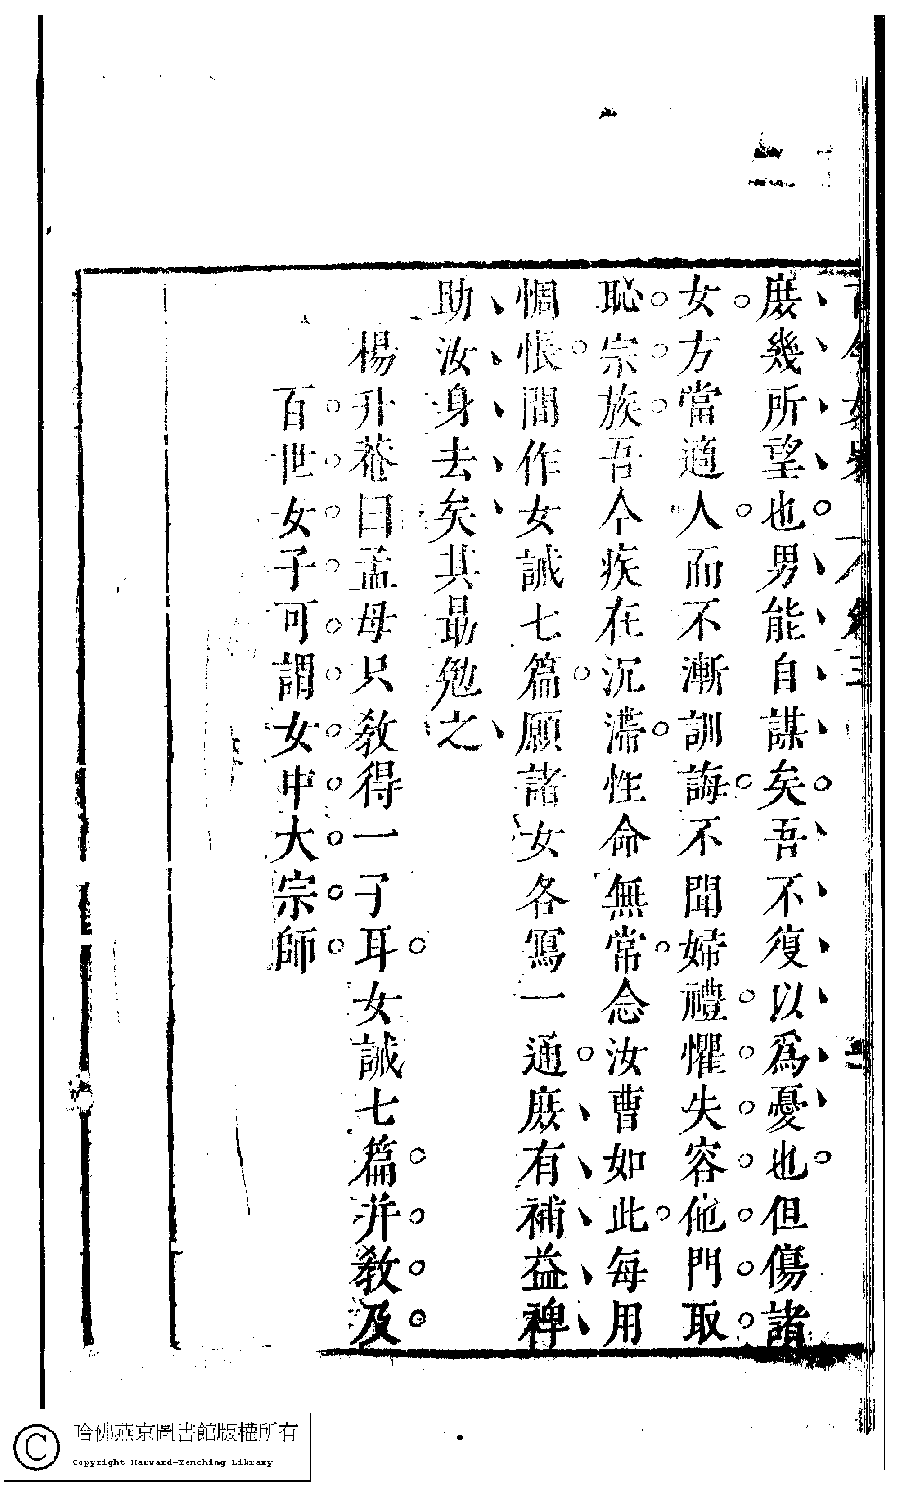 庶幾所望也男能自謀矣吾不復以爲憂也但傷諸
女方當適人而不漸訓誨不聞婦禮懼失容他門取
恥宗族吾今疾在沉滯性命無常念汝曹如此每用
惆悵間作女誡七篇願諸女各寫一通庶有補益裨
助汝身去矣其勗勉之
楊升菴曰孟母只敎得一子耳女誡七篇并敎及
百世女子可謂女中大宗師
哈佛燕京圖書館版權所有
Copyright Harvard-Yenching Library